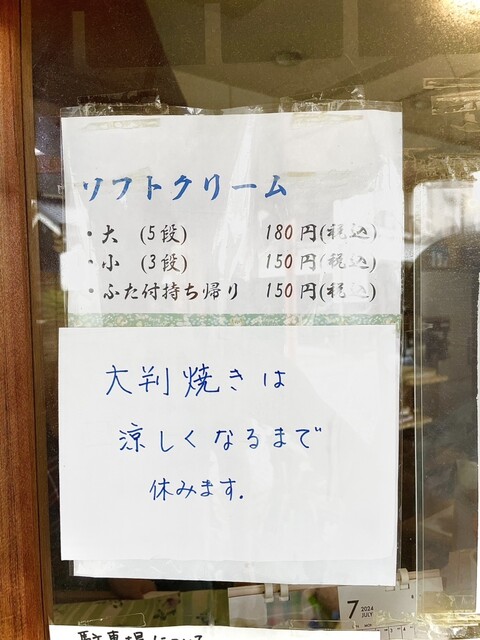 ソフトクリーム
・大 (5段) 180円(税込)
・小 (3段) 150円(税込)
・ふた付持ち帰り 150円(税込)
大判焼きは
涼しくなるまで
休みます.
7 2024
JULY
駐車場について